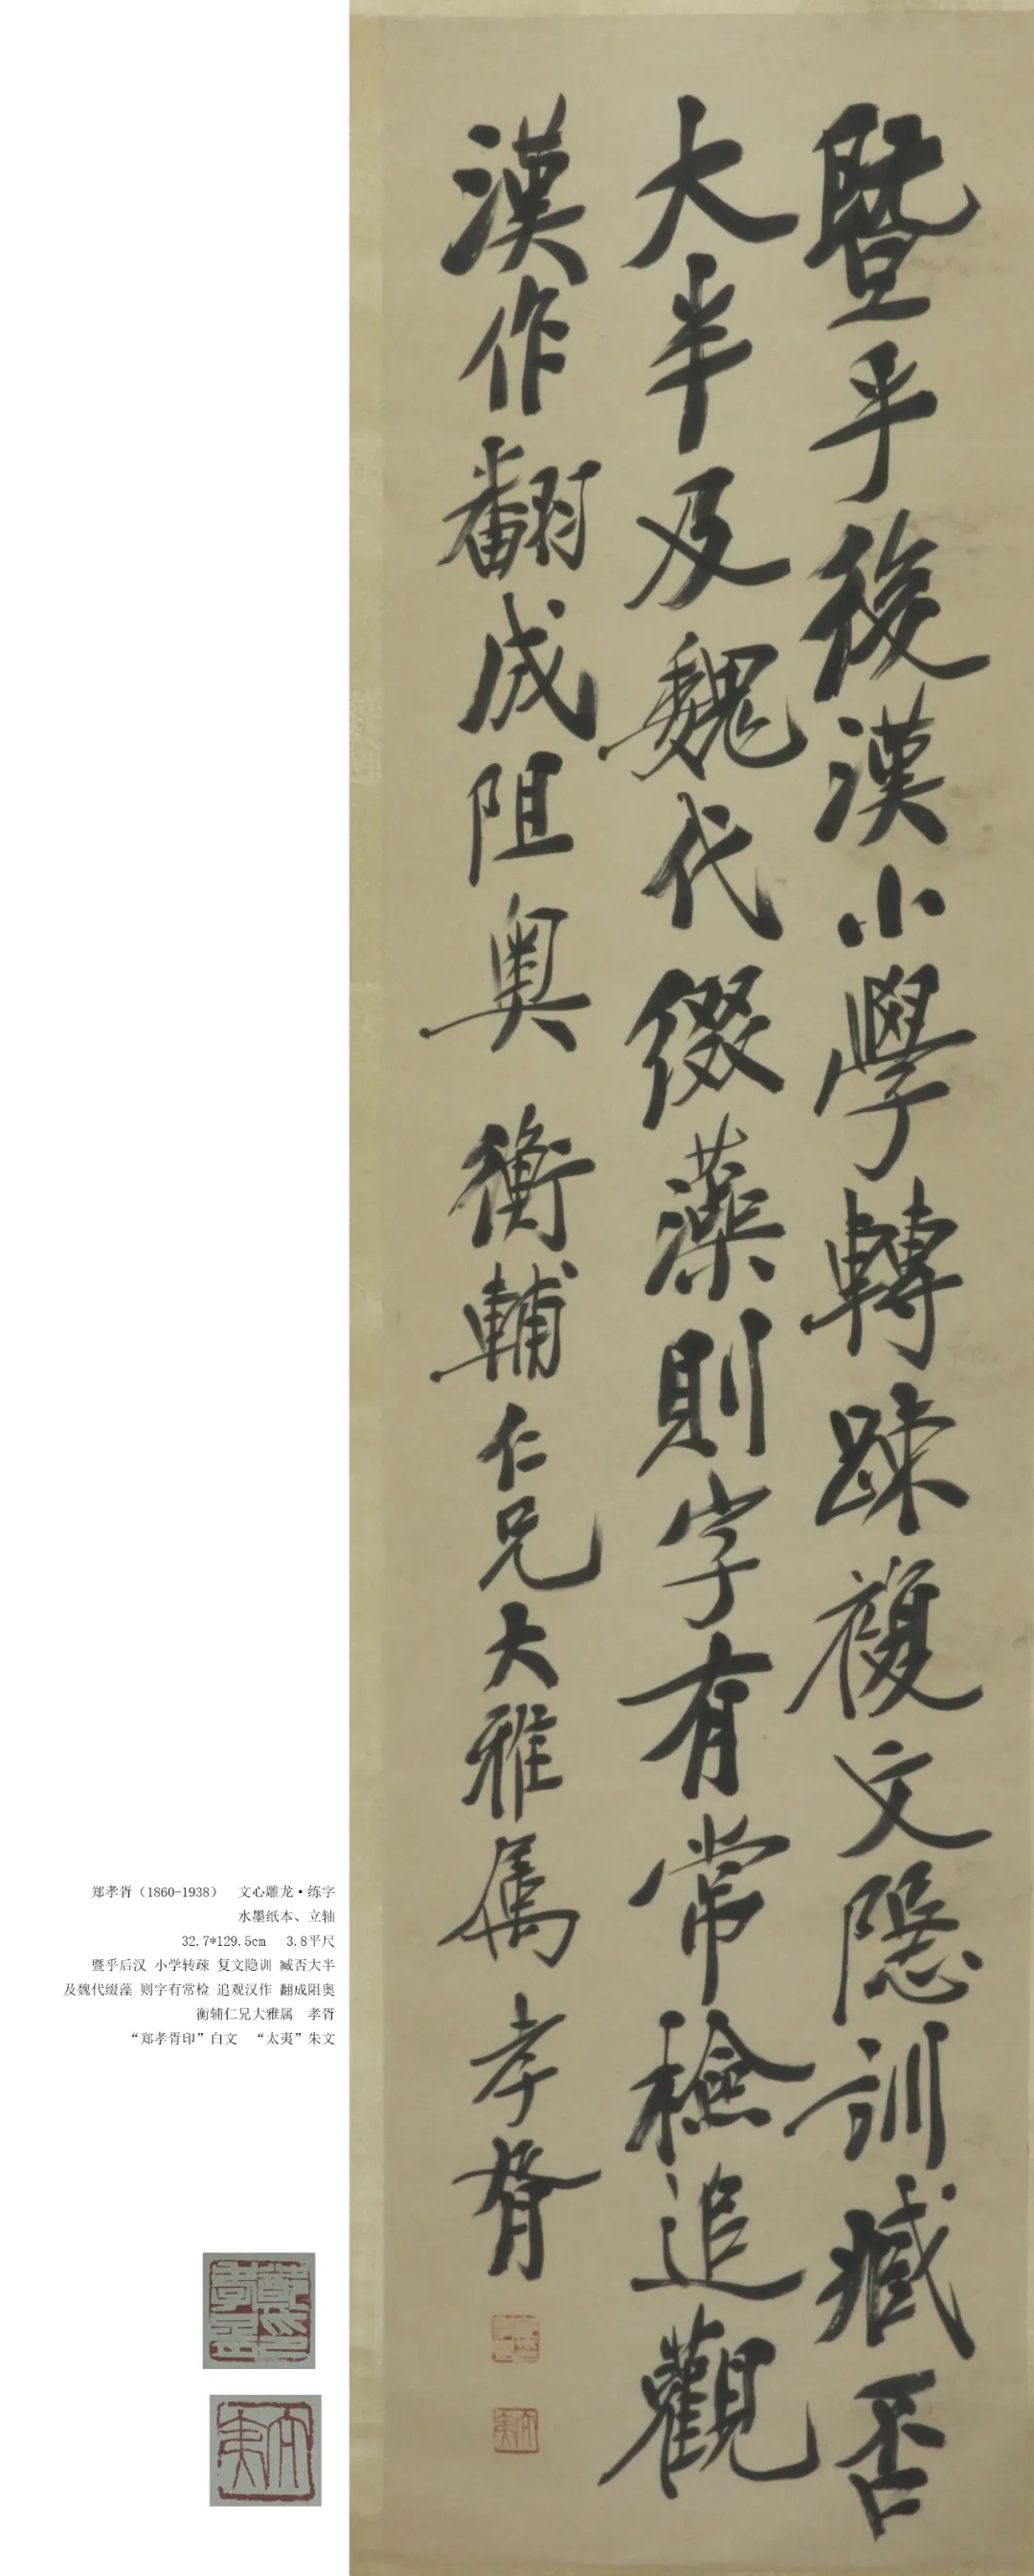 暨乎後漢小學轉疎複文隱訓臧否
大半及魏代綴藻則字有常檢追觀
漢作翻成阻奧 衡輔仁兄大雅属 孝胥
郑孝胥（1860-1938） 文心雕龙·练字
水墨纸本、立轴
32.7*129.5cm 3.8平尺
暨乎后汉 小学转疎 复文隐训 臧否大半
及魏代缀藻 则字有常检 追观汉作 翻成阻奥
衡辅仁兄大雅属 孝胥
“郑孝胥印”白文 “太夷”朱文
鄭孝胥印
太夷